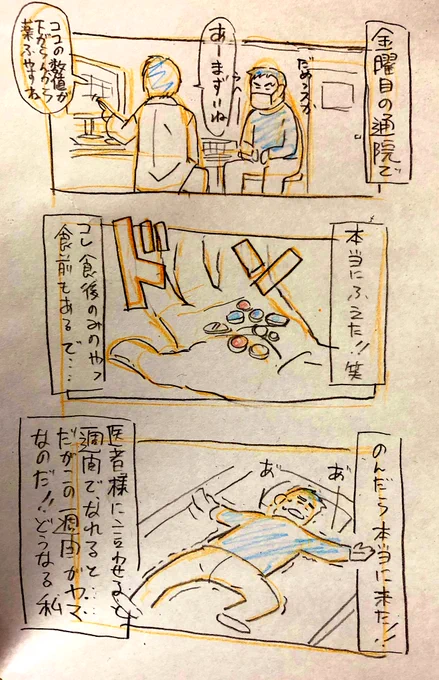 金曜日の通院で
だめっスか
あーまずいね
うへ〜
ココの数値が
下がらんから
薬ふやすね
本当にふえた!!笑
ドドン
コレ食後のみのやつ
食前もあるで…
のんだら本当に来た!!
あ゛
あ゛
医者様に言わせると
1週間でなれると…
だがこの一週間がヤマ
なのだ!!どうなる私